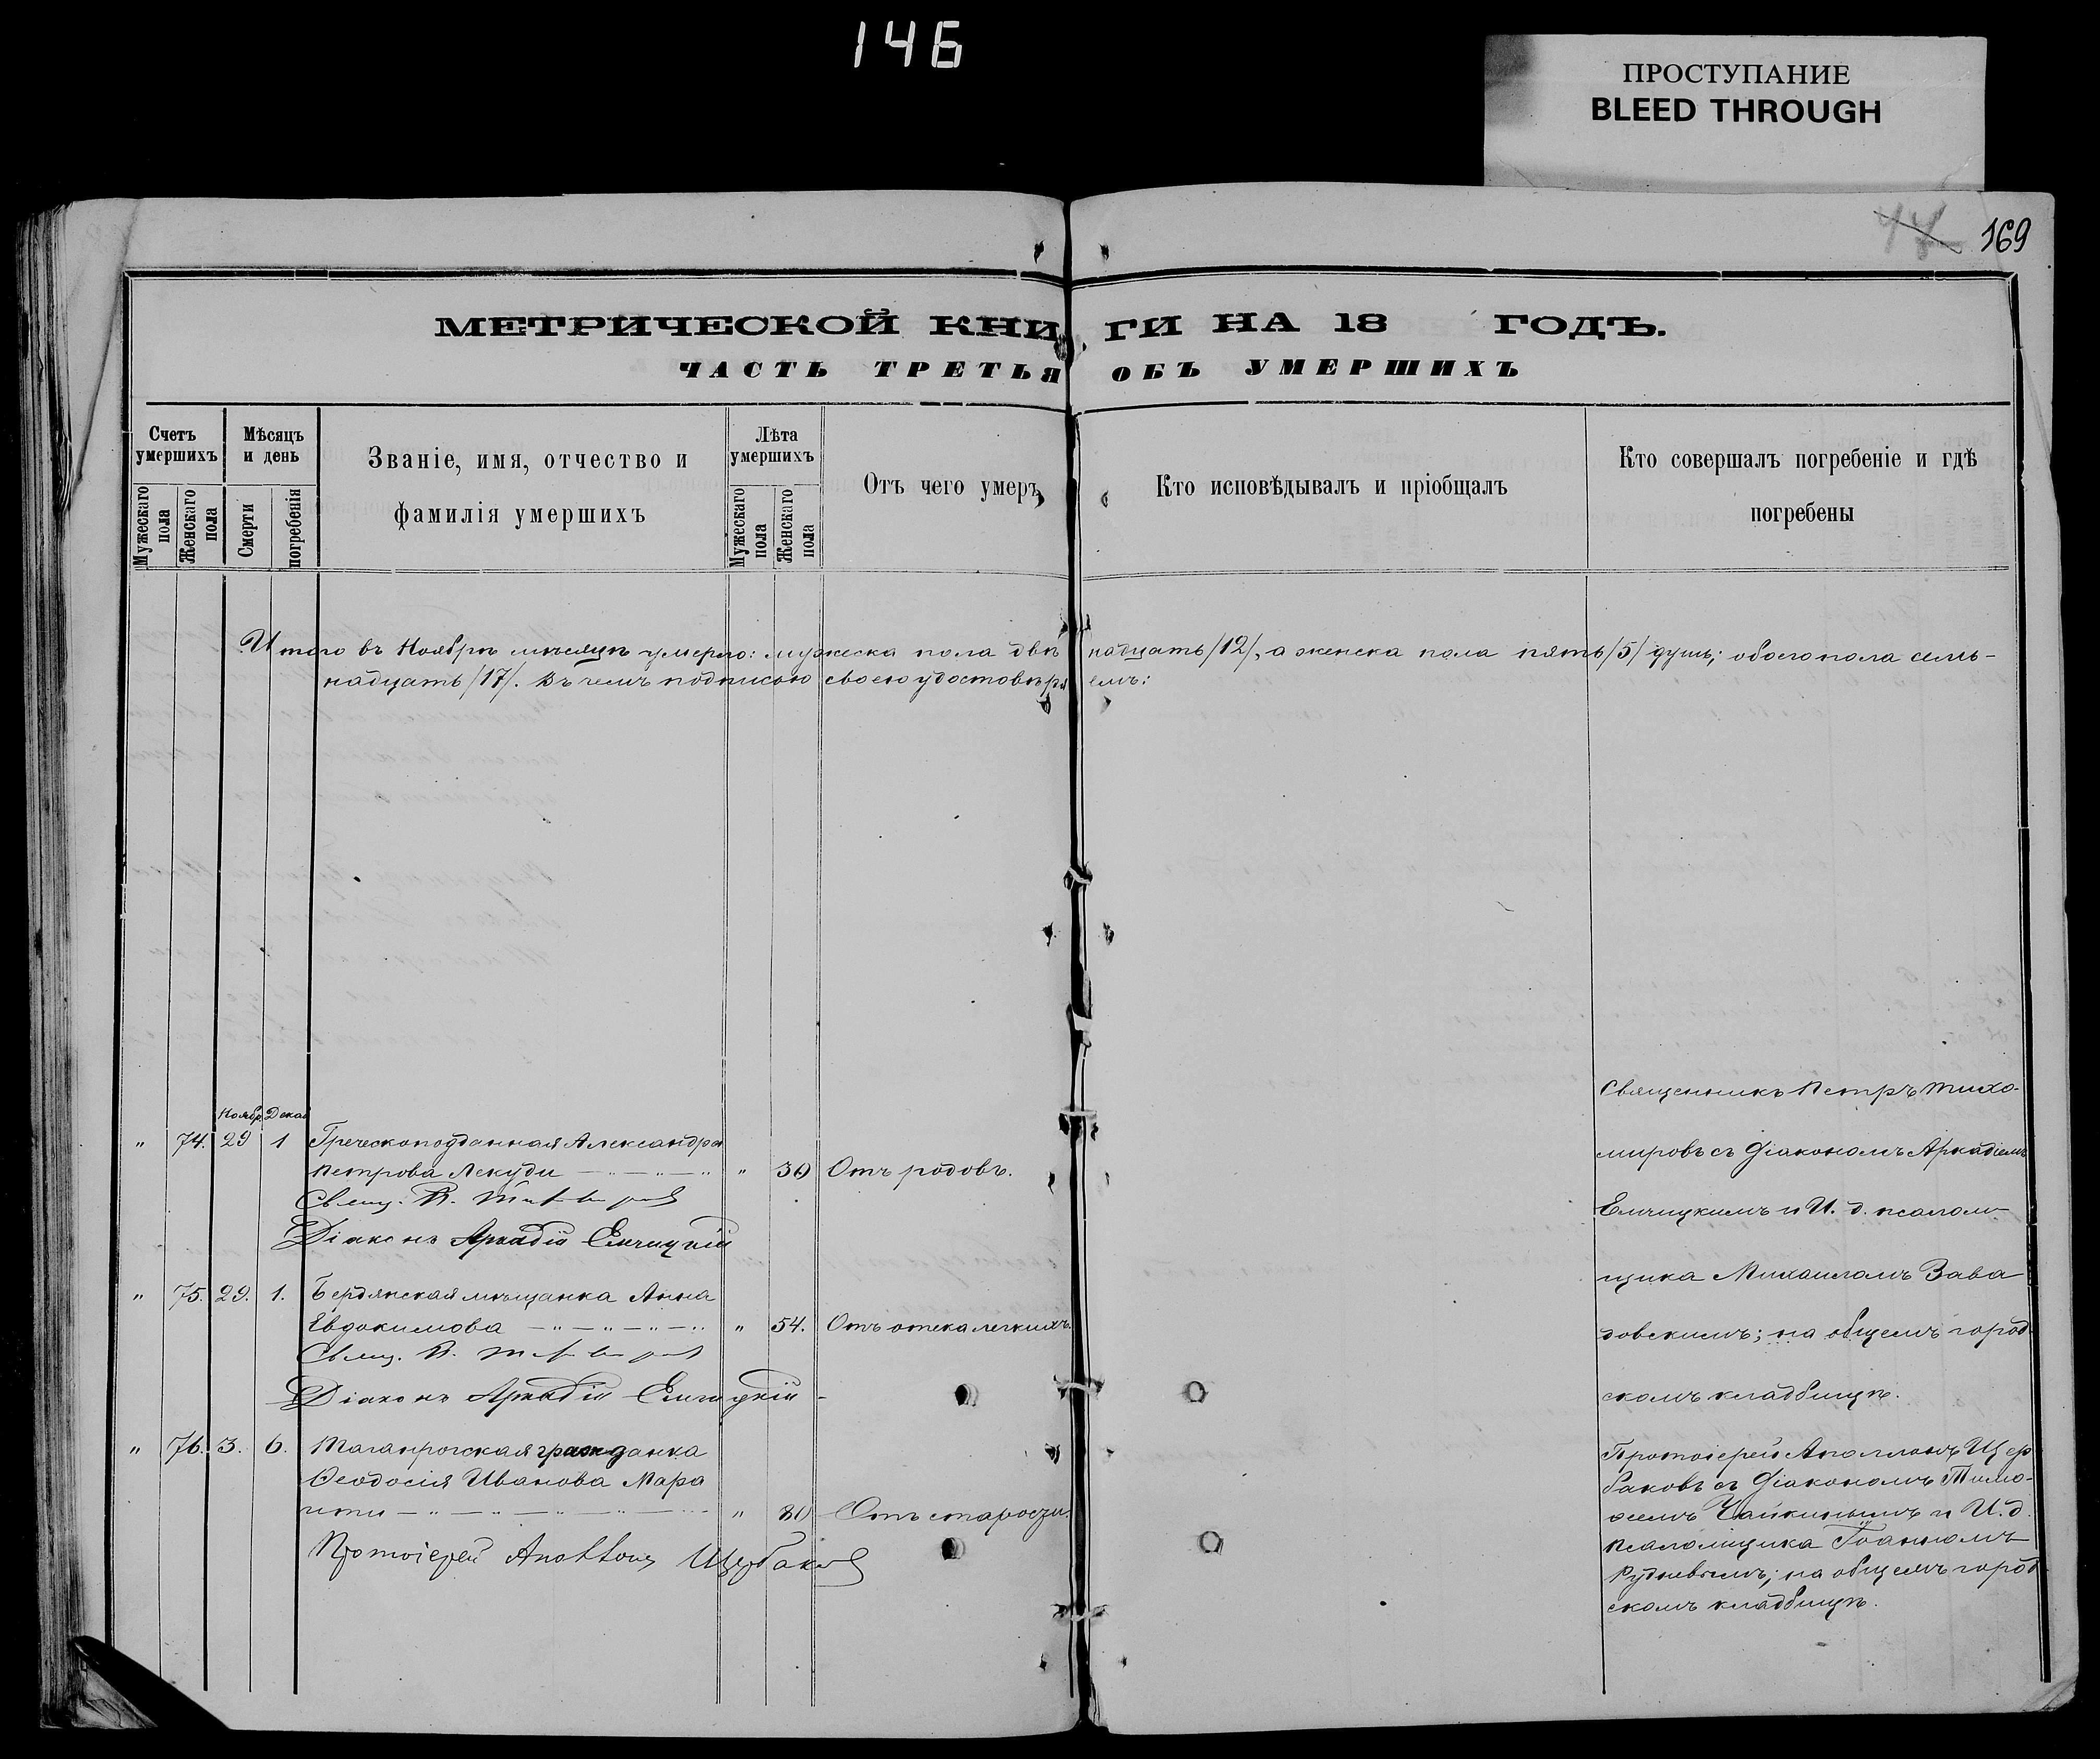 146
ПРОСТУПАНИЕ
BLEED THROUGH
169
МЕТРИЧЕСКОЙ КНИГИ НА 18 ГОДЪ.
ЧАСТЬ ТРЕТЬЯ ОБЪ УМЕРШИХЪ
Счетъ умершихъ
Мужескаго пола
Женскаго пола
Мѣсяцъ и день
Смерти
погребенія
Званіе, имя, отчество и
фамилія умершихъ
Лѣта умершихъ
Мужескаго пола
Женскаго пола
Отъ чего умеръ
Кто исповѣдывалъ и пріобщалъ
Кто совершалъ погребеніе и гдѣ
погребены
Итого въ Ноябрѣ мѣсяцѣ умерло: мужеска пола двѣнадцать /12/, а женска пола пять /5/ душъ; обоего пола семь-
надцать /17/. Въ чемъ подписою своею удостовѣряемъ:
Ноябр. Декаб.
" 74. 29 1 Греческоподданная Александра
Петрова Лекуди — " — " — " " 30 Отъ родовъ.
Свящ. П. Тихомировъ
Діаконъ Аркадій Емчицкій
Священникъ Петръ Тихо-
мировъ съ Діакономъ Аркадіемъ
Емчицкимъ и И. д. псалом-
щика Михаиломъ Зава
довскимъ; на общемъ город-
скомъ кладбищѣ.
" 75. 29. 1. Бердянская мѣщанка Анна
Евдокимова — " — " — " — " " 54. Отъ отека легкихъ.
Свящ. П. Тихомировъ
Діаконъ Аркадій Емчицкій
" 76. 3. 6. Таганрогская гражданка
Ѳеодосія Ивановa Мара
— " — " — " — " " 80 Отъ старости.
Протоіерей Аполлонъ Щербаковъ
Протоіерей Аполлонъ Щер
баковъ съ Діакономъ Тимо-
ѳеемъ Чайкинымъ и И. д.
псаломщика Іоанномъ
Рудневымъ; на общемъ город
скомъ кладбищѣ.